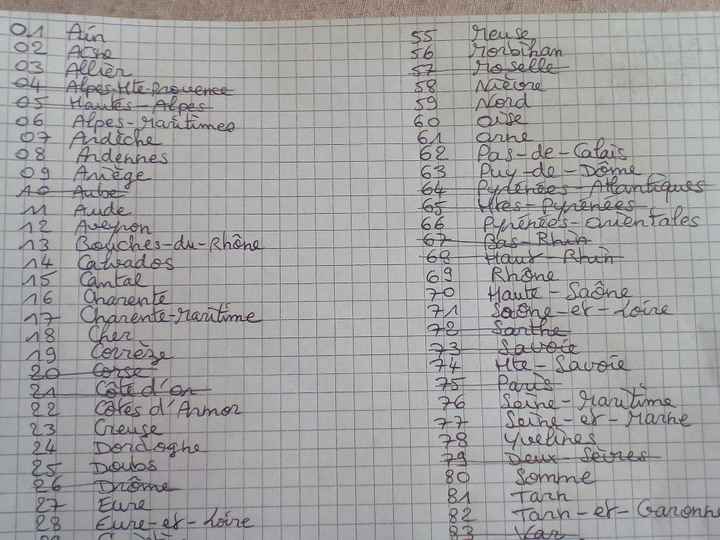 01 Ain
02 Aisne
03 Allier
04 Alpes Hte Provence
05 Hautes-Alpes
06 Alpes-Maritimes
07 Ardèche
08 Ardennes
09 Ariège
10 Aube
11 Aude
12 Aveyron
13 Bouches-du-Rhône
14 Calvados
15 Cantal
16 Charente
17 Charente-Maritime
18 Cher
19 Corrèze
20 Corse
21 Côte d'or
22 Côtes d'Armor
23 Creuse
24 Dordogne
25 Doubs
26 Drôme
27 Eure
28 Eure-et-Loire
55 Meuse
56 Morbihan
57 Moselle
58 Nièvre
59 Nord
60 Oise
61 Orne
62 Pas-de-Calais
63 Puy-de-Dôme
64 Pyrénées-Atlantiques
65 Htes-Pyrénées
66 Pyrénées-Orientales
67 Bas-Rhin
68 Haut-Rhin
69 Rhône
70 Haute-Saône
71 Saône-et-Loire
72 Sarthe
73 Savoie
74 Hte-Savoie
75 Paris
76 Seine-Maritime
77 Seine-et-Marne
78 Yvelines
79 Deux-Sèvres
80 Somme
81 Tarn
82 Tarn-et-Garonne
83 Var